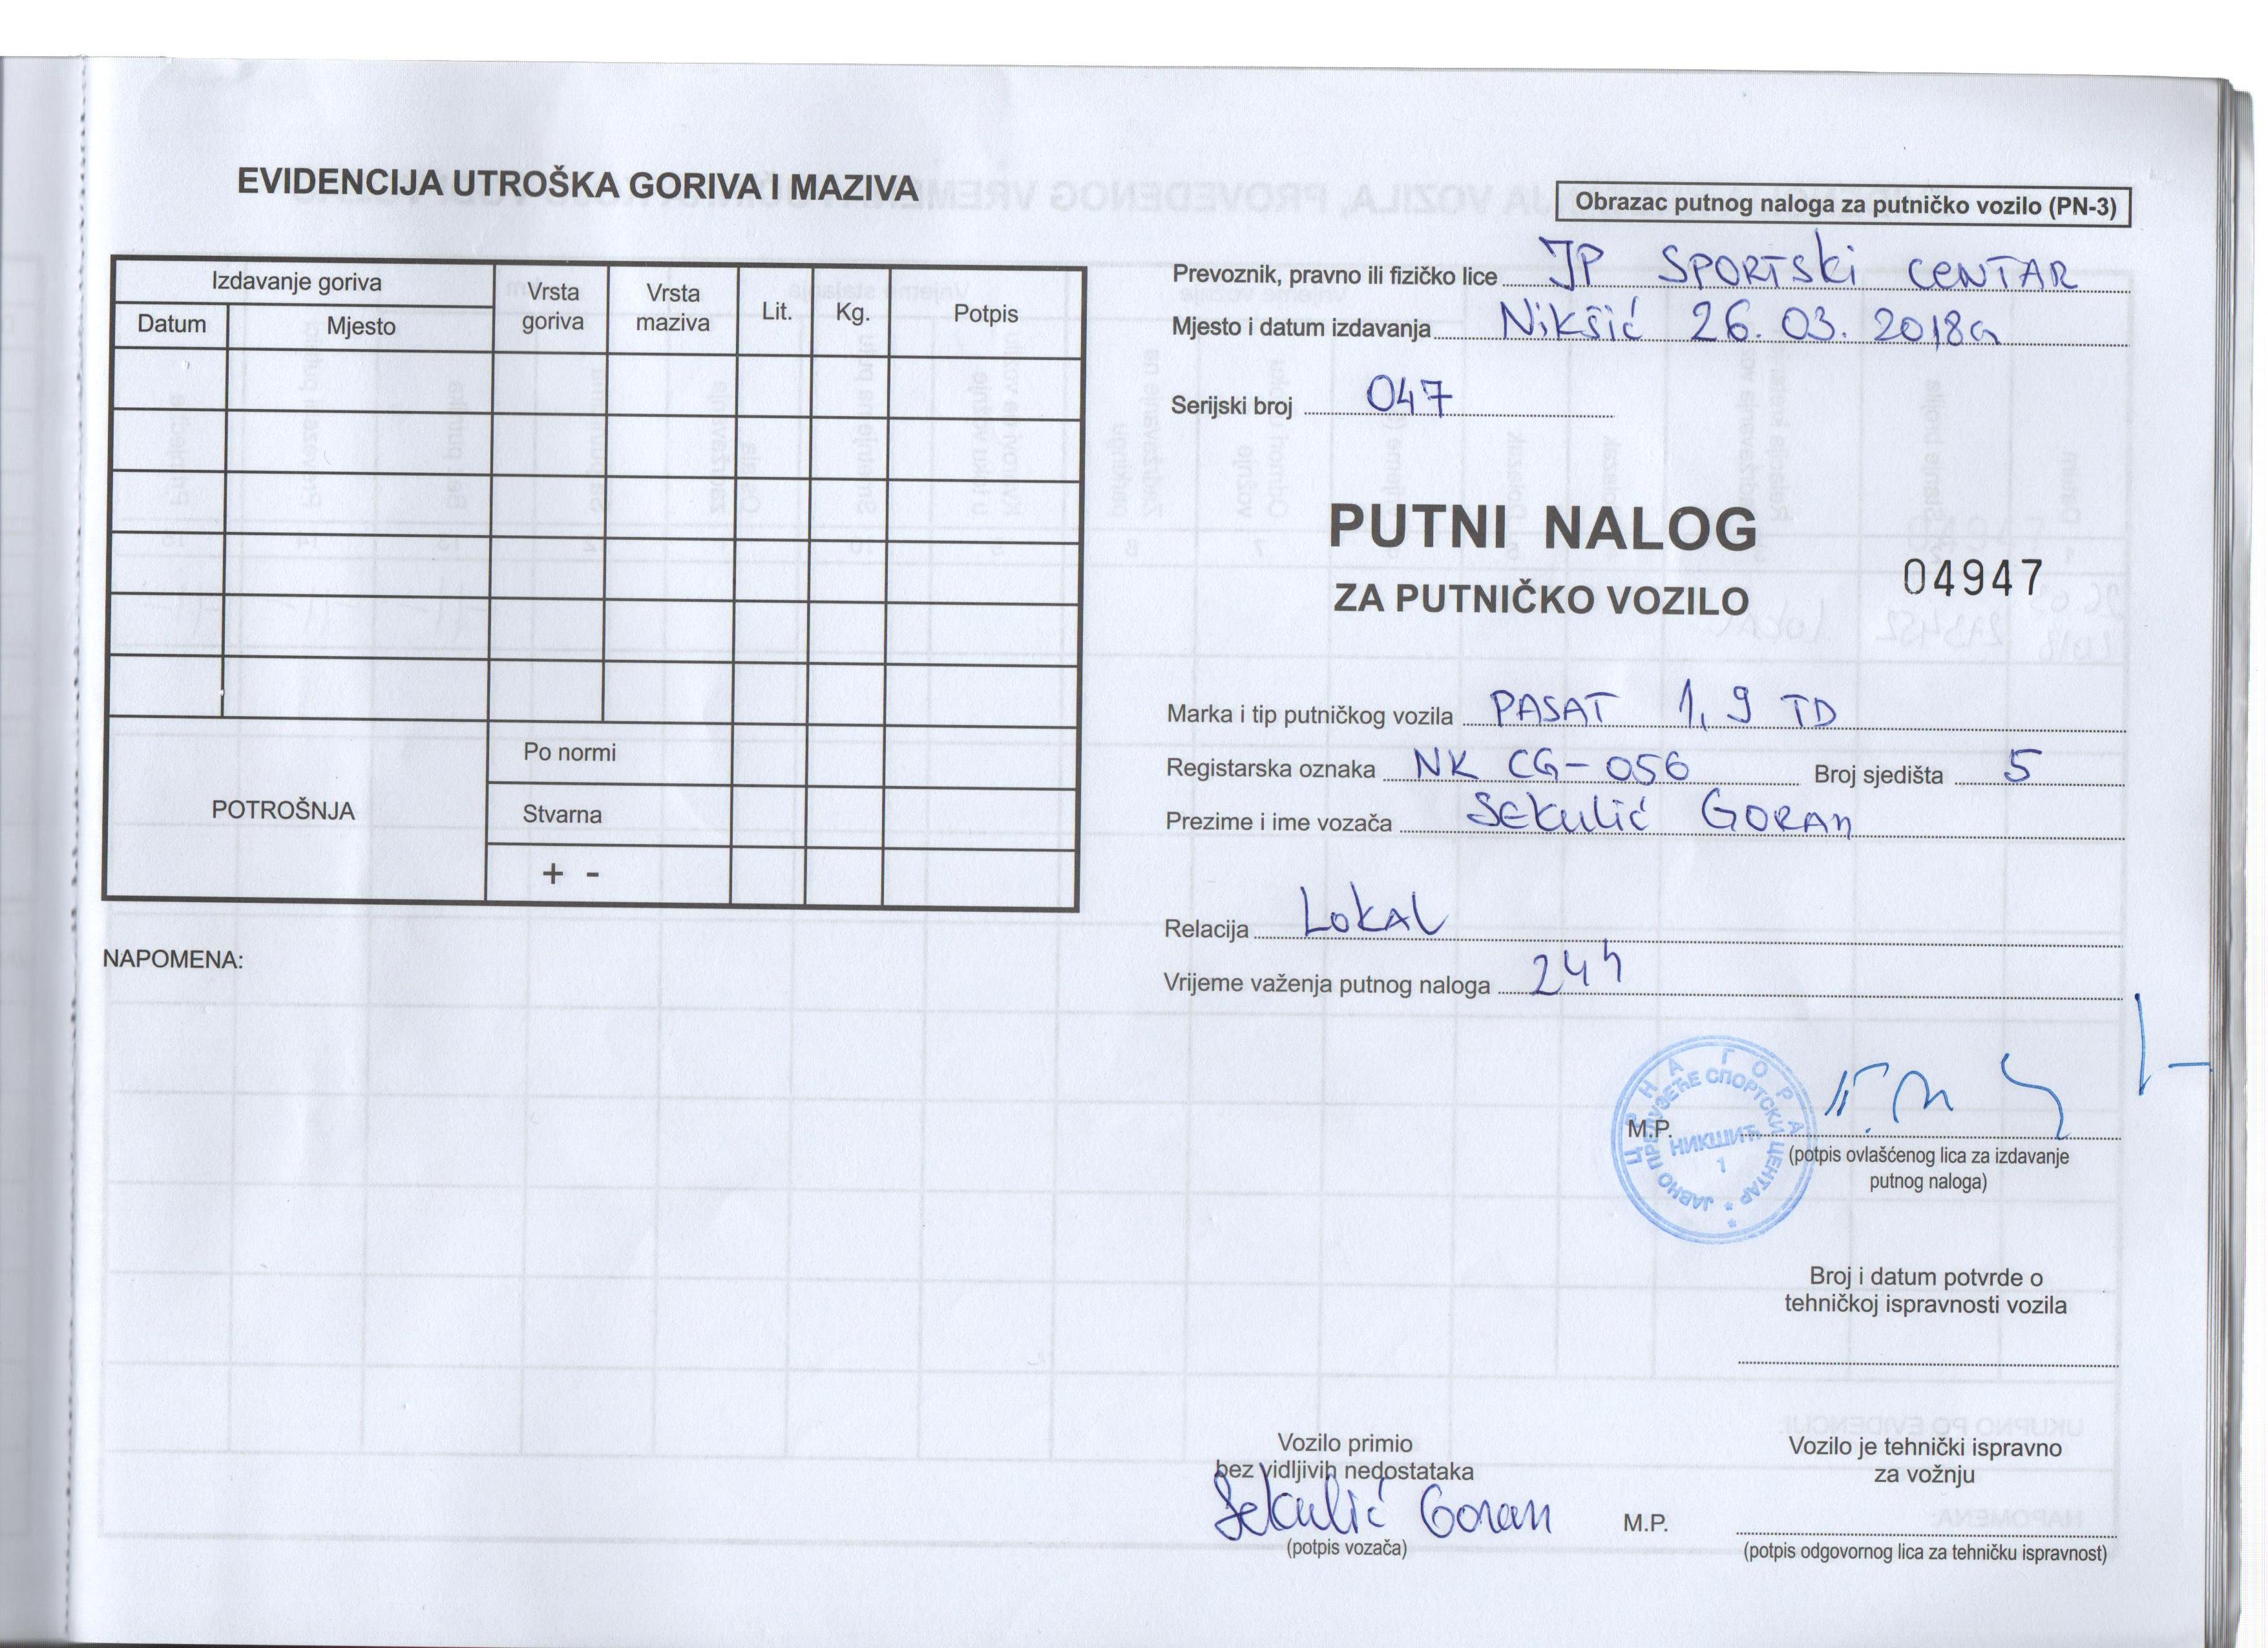 EVIDENCIJA UTROŠKA GORIVA I MAZIVA
Izdavanje goriva
Datum
Mjesto
Vrsta goriva
Vrsta maziva
Lit.
Kg.
Potpis
POTROŠNJA
Po normi
Stvarna
+ -
NAPOMENA:
Obrazac putnog naloga za putničko vozilo (PN-3)
Prevoznik, pravno ili fizičko lice JP SPORTSKI CENTAR
Mjesto i datum izdavanja Nikšić 26.03.2018g
Serijski broj 047
PUTNI NALOG
ZA PUTNIČKO VOZILO
04947
Marka i tip putničkog vozila PASAT 1,9 TD
Registarska oznaka NK CG-056 Broj sjedišta 5
Prezime i ime vozača Sekulić Goran
Relacija Lokal
Vrijeme važenja putnog naloga 24h
ЦРНА ГОРА
ЈАВНО ПРЕДУЗЕЋЕ СПОРТСКИ ЦЕНТАР
НИКШИЋ
1
M.P.
(potpis ovlašćenog lica za izdavanje
putnog naloga)
Broj i datum potvrde o
tehničkoj ispravnosti vozila
Vozilo primio
bez vidljivih nedostataka
Sekulić Goran
(potpis vozača)
Vozilo je tehnički ispravno
za vožnju
M.P.
(potpis odgovornog lica za tehničku ispravnost)